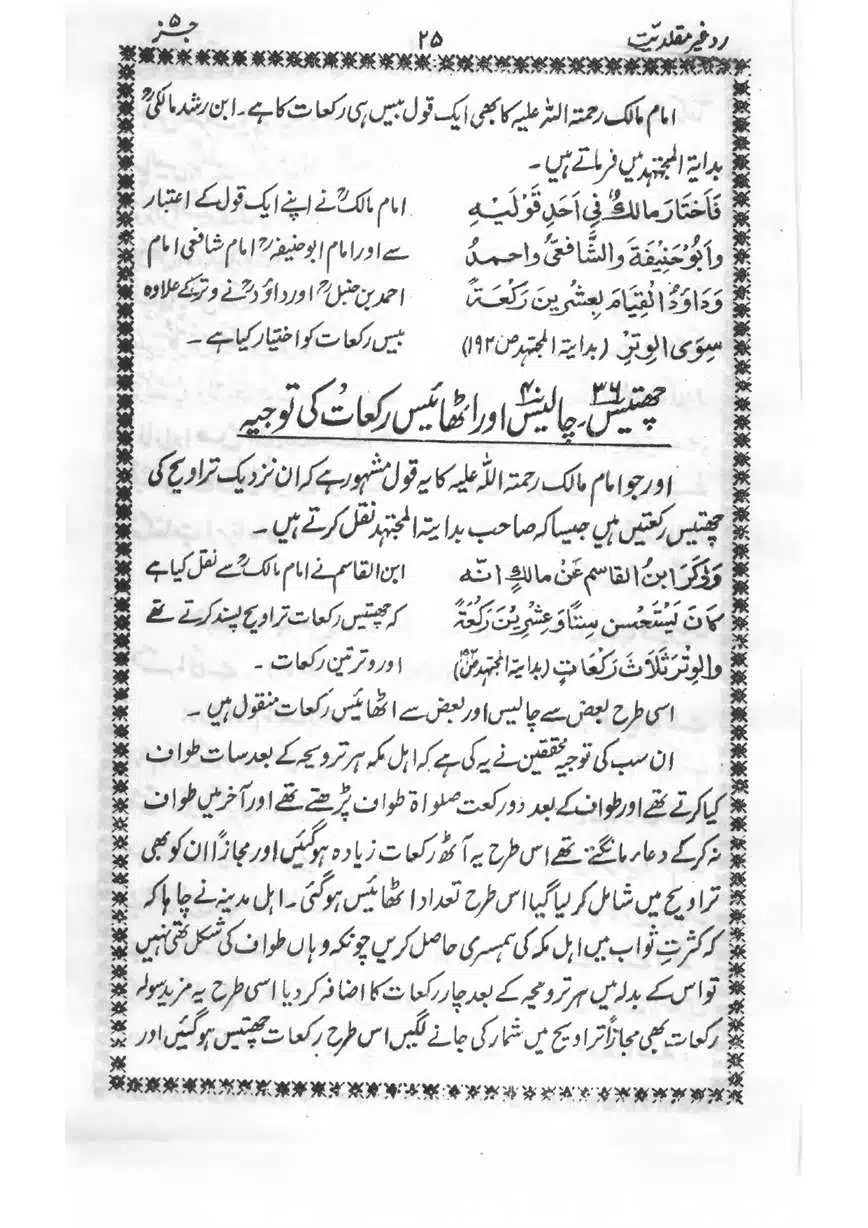 رد غیر مقلدیت ۲۵ جز ۵
امام مالک رحمتہ اللہ علیہ کا بھی ایک قول بیس ہی رکعات کا ہے۔ ابن رشد مالکیؒ
بدایۃ المجتہد میں فرماتے ہیں۔
فَاَخْتَارَ مَالِكٌ فِي اَحَدِ قَوْلَيْهِ امام مالکؒ نے اپنے ایک قول کے اعتبار
وَاَبُوْحَنِيْفَةَ وَالشَّافعیُّ واحمدُ سے اور امام ابو حنیفہؒ امام شافعی امام
وَدَاوٗدُ الْقِيَامَ بِعِشْرِينَ رَكْعَةً احمد بن حنبلؒ اور داؤدؒ نے وتر کے علاوہ
سِوَى الْوِتْرِ (بدایۃ المجتہد ص ۱۹۲) بیس رکعات کو اختیار کیا ہے۔
چھتیس ۳۶۔ چالیس ۴۰ اور اٹھائیس رکعات کی توجیہ
اور جو امام مالک رحمتہ اللہ علیہ کا یہ قول مشہور ہے کہ ان نزدیک تراویح کی
چھتیس رکعتیں ہیں جیسا کہ صاحب بدایتہ المجتہد نقل کرتے ہیں۔
وَذَكَرَ ابنُ القاسم عَنْ مالكٍ انّه ابن القاسم نے امام مالکؒ سے نقل کیا ہے
كَانَ يَسْتَحْسِن سِتًّا وَعِشْرِيْنَ رَكْعَةً کہ چھتیس رکعات تراویح پسند کرتے تھے
والوِتْرَ ثَلَاثَ رَكْعَاتٍ (بدایۃ المجتہد ص) اور وتر تین رکعات۔
اسی طرح بعض سے چالیس اور بعض سے اٹھائیس رکعات منقول ہیں۔
ان سب کی توجیہ محققین نے یہ کی ہے کہ اہل مکہ ہر ترویحہ کے بعد سات طواف
کیا کرتے تھے اور طواف کے بعد دو رکعت صلواۃ طواف پڑھتے تھے اور آخر میں طواف
نہ کر کے دعاء مانگتے تھے اس طرح یہ آٹھ رکعات زیادہ ہو گئیں اور مجازاً ان کو بھی
تراویح میں شامل کر لیا گیا اس طرح تعداد اٹھائیس ہو گئی۔ اہل مدینہ نے چاہا کہ
کہ کثرتِ ثواب میں اہل مکہ کی ہمسری حاصل کریں چونکہ وہاں طواف کی شکل تھی نہیں
تو اس کے بدلہ میں ہر ترویحہ کے بعد چار رکعات کا اضافہ کر دیا اسی طرح یہ مزید سولہ
رکعات بھی مجازاً تراویح میں شمار کی جانے لگیں اس طرح رکعات چھتیس ہو گئیں اور